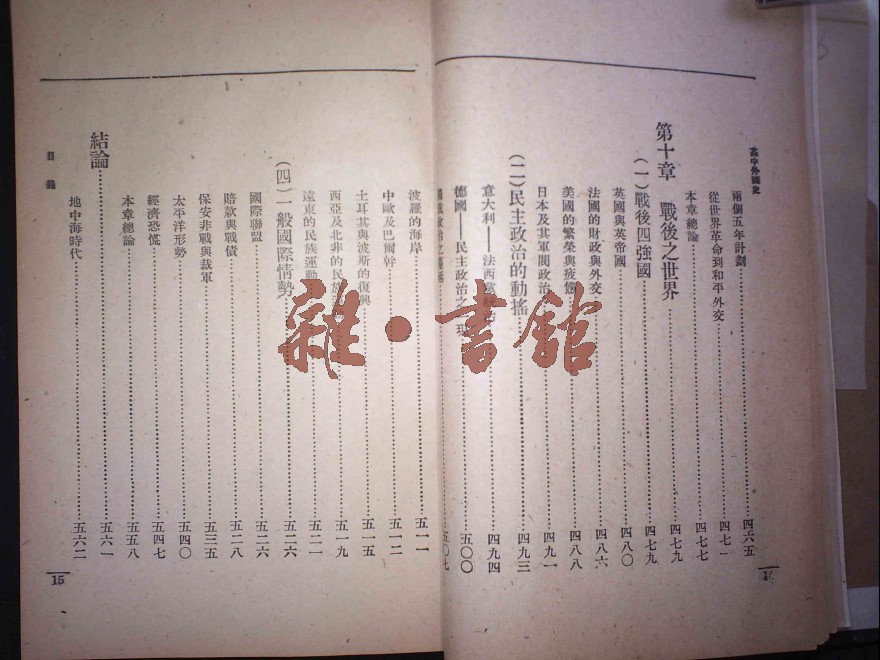 高中外國史
兩個五年計劃 四六五
從世界革命到和平外交 四七一
本章總論 四七七
第十章 戰後之世界 四七九
(一)戰後四強國 四七九
英國與英帝國 四八〇
法國的財政與外交 四八六
美國的繁榮與疲憊 四八八
日本及其軍閥政治 四九一
(二)民主政治的動搖 四九三
意大利——法西 四九四
德國——民主政治之 五〇〇
五〇七
波羅的海岸 五一一
中歐及巴爾幹 五一二
土耳其與波斯的復興 五一五
西亞及北非的民族 五一九
遠東的民族運動 五二一
(四)一般國際情勢 五二六
國際聯盟 五二六
賠款與戰債 五二八
保安非戰與裁軍 五三五
太平洋形勢 五四〇
經濟恐慌 五四七
本章總論 五五八
結論 五六一
地中海時代 五六二
目錄
15
雜·書館